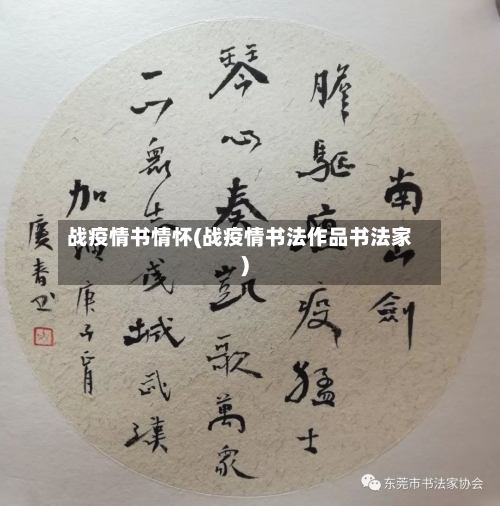 南山劍
膽驅瘟疫猛士
琴心奏凱歌萬眾
一心眾志成城武漢
加油庚子正月
书
战疫情书情怀(战疫情书法作品书法家
)
东莞市书法家协会